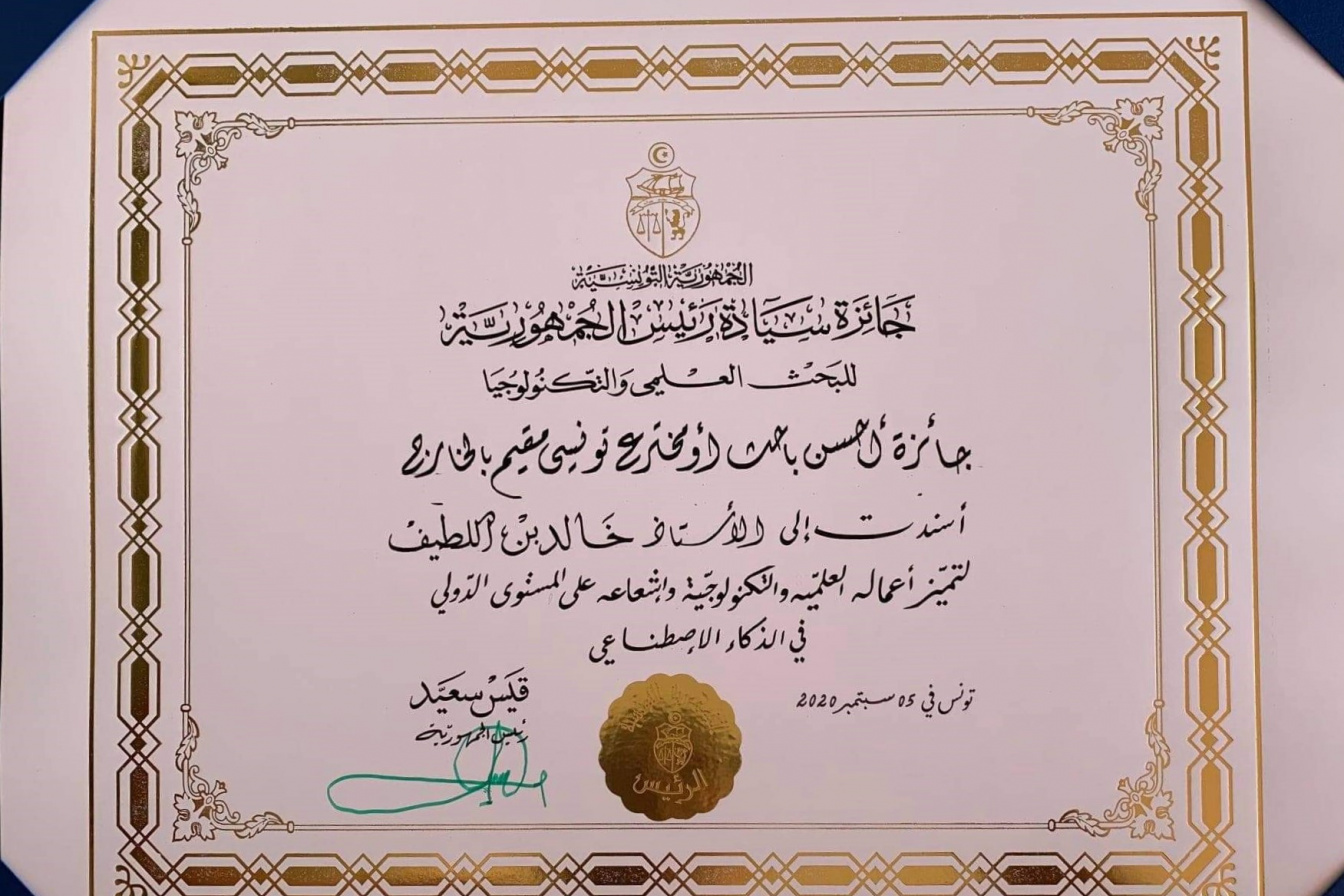 الجمهورية التونسية
جائزة سيادة رئيس الجمهورية
للبحث العلمي والتكنولوجيا
جائزة أحسن باحث أو مخترع تونسي مقيم بالخارج
أسندت إلى الأستاذ خالد بن اللطيف
لتميّز أعماله العلميّه والتكنولوجيّة وإشعاعه على المستوى الدّولي
في الذكاء الإصطناعي
تونس في 05 سبتمبر 2020
قيس سعيّد
رئيس الجمهوريّة
الرئيس